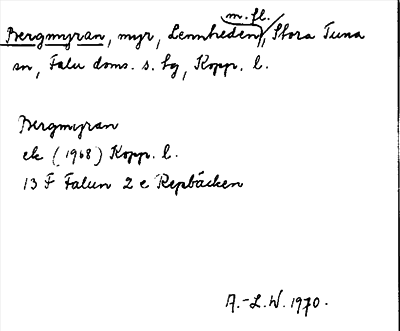 m. fl.
Bergmyran, myr, Lennheden, Stora Tuna
sn, Falu doms. s. bg, Kopp. l.
Bergmyran
ek (1968) Kopp. l.
13 F Falun 2 e Repbäcken
A.-L.W. 1970.